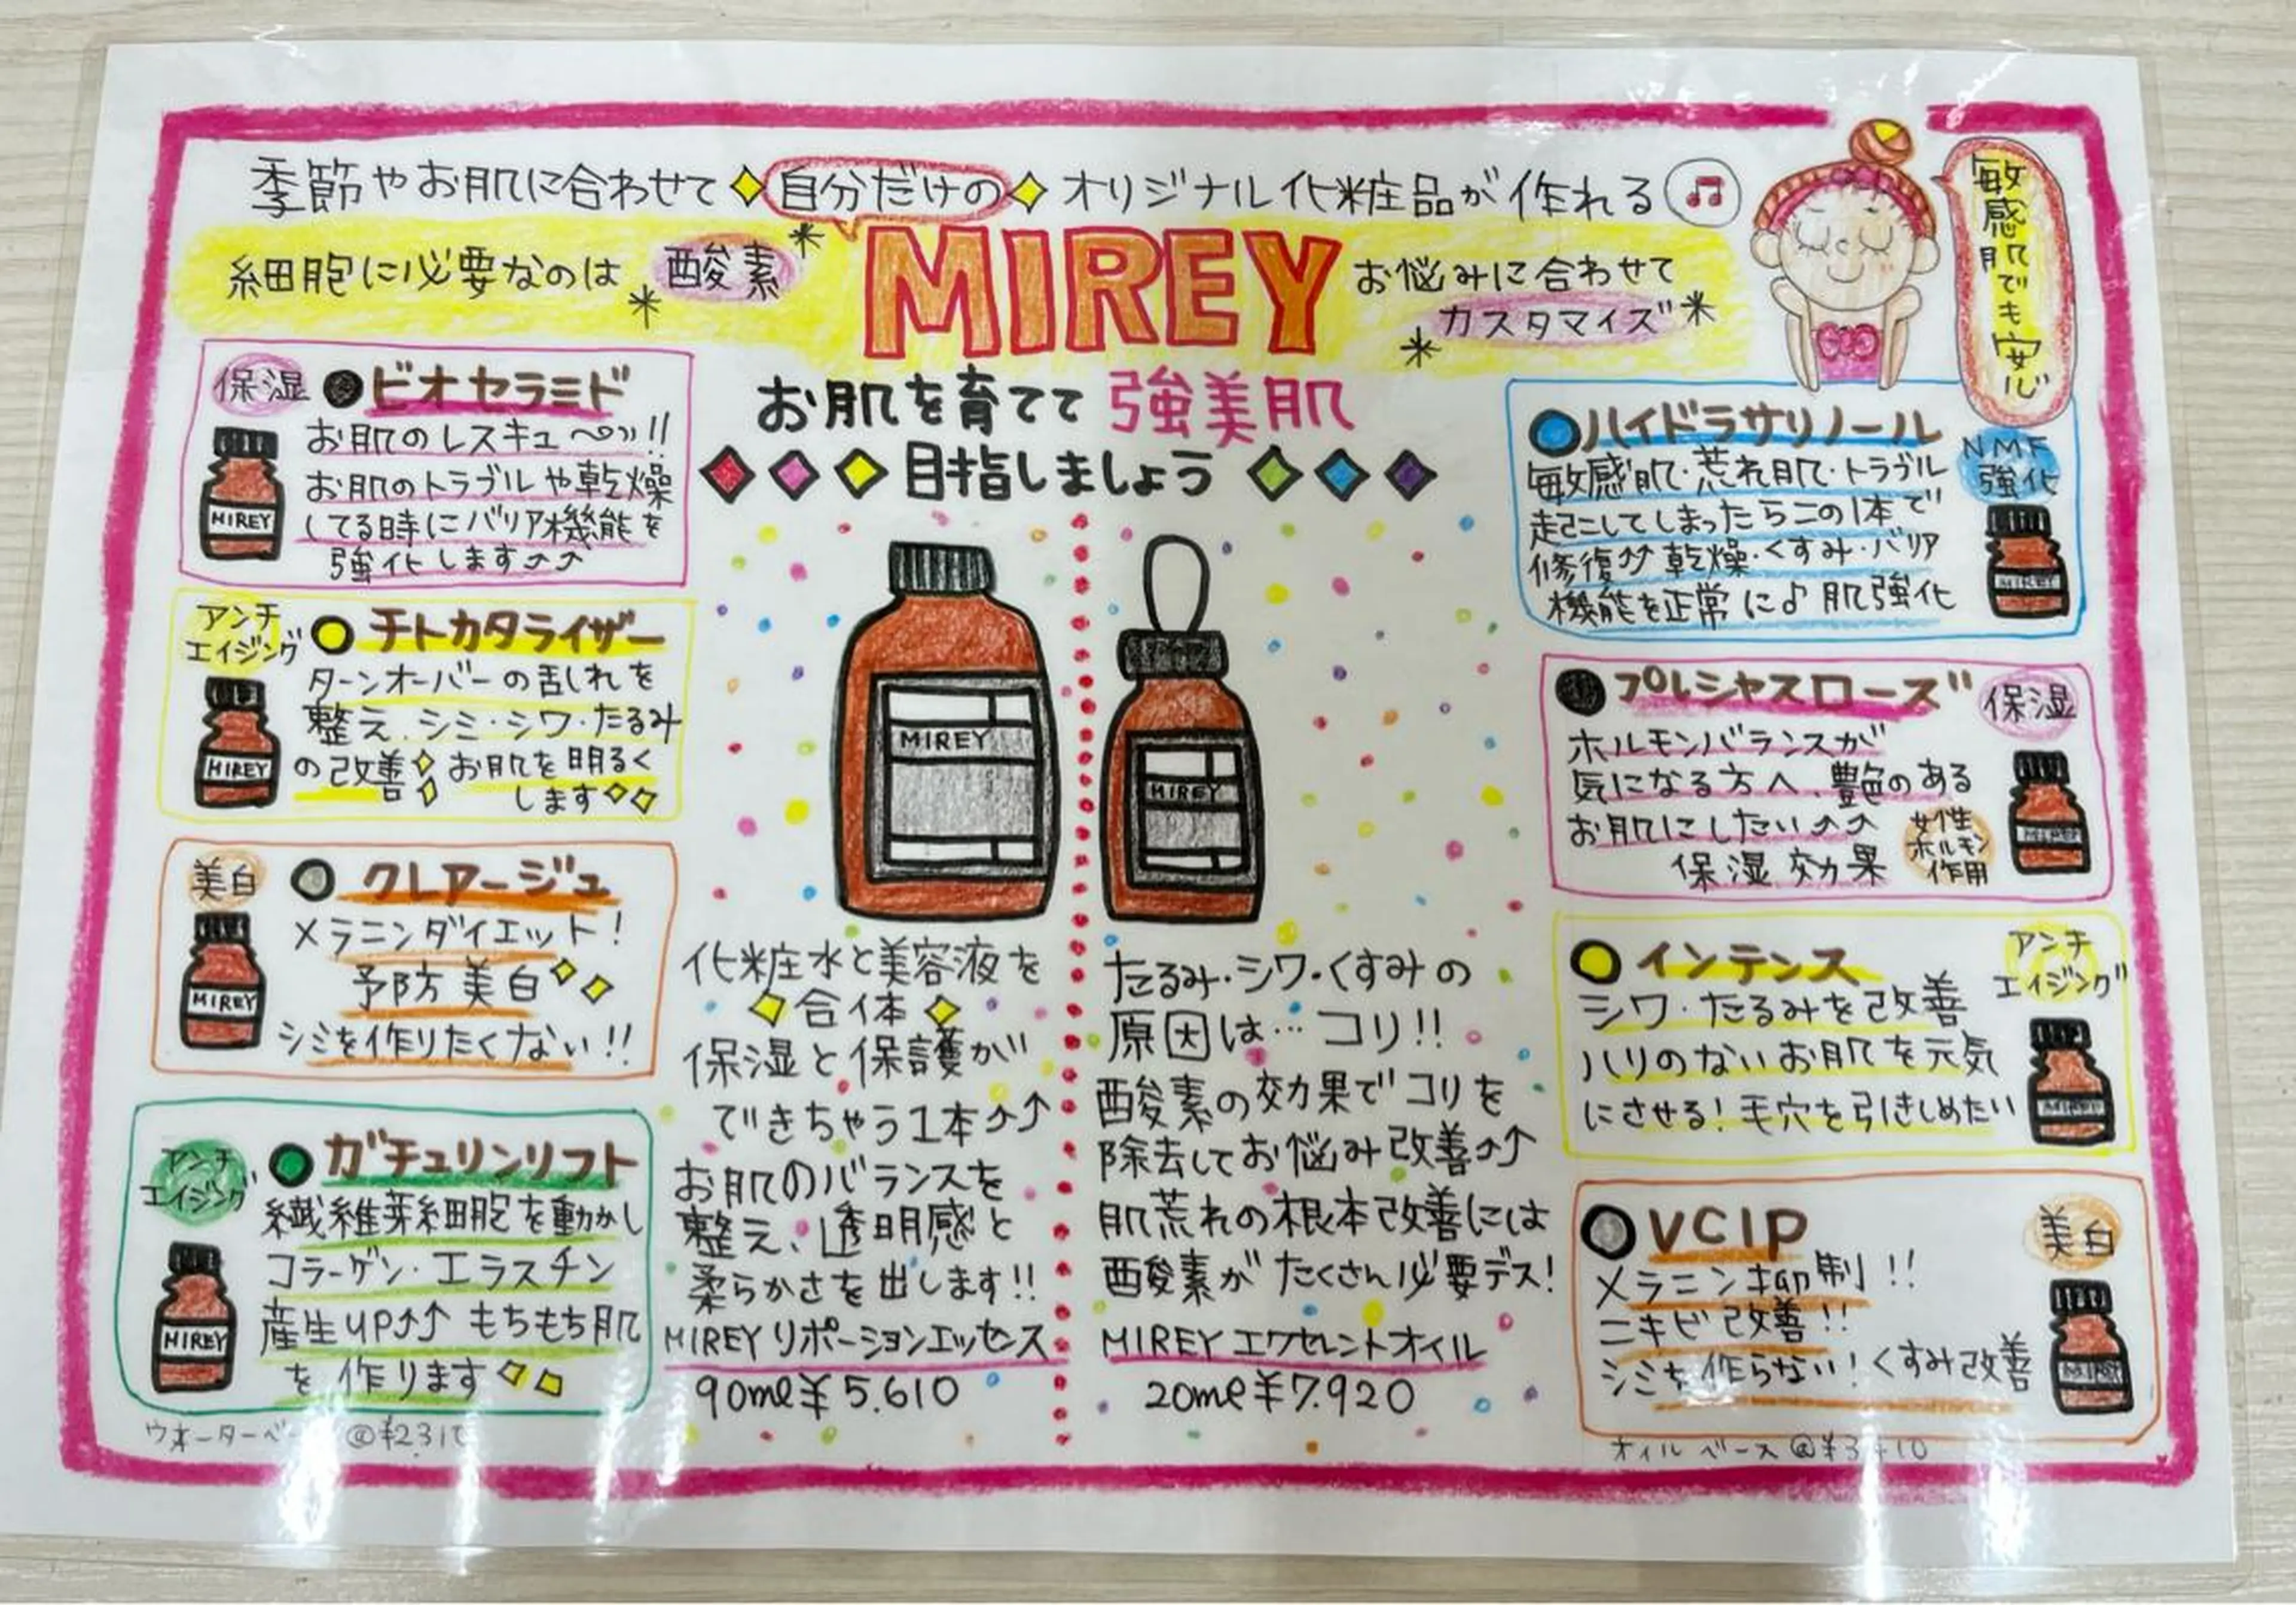 季節やお肌に合わせて自分だけのオリジナル化粧品が作れる
細胞に必要なのは 酸素
MIREY
お悩みに合わせて
カスタマイズ
敏感肌でも安心
お肌を育てて 強美肌
目指しましょう
保湿
ビオセラミド
お肌のレスキュ〜!!
お肌のトラブルや乾燥
してる時にバリア機能を
強化します↑↑
MIREY
アンチ
エイジング
チトカタライザー
ターンオーバーの乱れを
整え、シミ・シワ・たるみ
の改善 お肌を明るく
します
MIREY
美白
クレアージュ
メラニンダイエット!
予防美白
シミを作りたくない!!
MIREY
アンチ
エイジング
ガチュリンリフト
繊維芽細胞を動かし
コラーゲン・エラスチン
産生UP↑↑ もちもち肌
を作ります
MIREY
ウオーターベー
MIREY
化粧水と美容液を
合体
保湿と保護が
できちゃう1本↑↑
お肌のバランスを
整え、透明感と
柔らかさを出します!!
MIREY リポーションエッセンス
90ml¥5.610
MIREY
たるみ・シワ・くすみの
原因は…コリ!!
酸素の効果でコリを
除去してお悩み改善↑↑
肌荒れの根本改善には
酸素がたくさん必要デス!
MIREY エクセレントオイル
20ml¥7.920
ハイドラサリノール
NMF
強化
敏感肌・荒れ肌・トラブル
起こしてしまったらこの1本で
修復↑↑ 乾燥・くすみ・バリア
機能を正常に♪ 肌強化
MIREY
プレシャスローズ
保湿
ホルモンバランスが
気になる方へ、艶のある
お肌にしたい↑↑
保湿効果
女性
ホルモン
作用
MIREY
インテンス
アンチ
エイジング
シワ・たるみを改善
ハリのないお肌を元気
にさせる!毛穴を引きしめたい
MIREY
VCIP
美白
メラニン抑制!!
ニキビ改善!!
シミを作らない!くすみ改善
MIREY
オイルベース